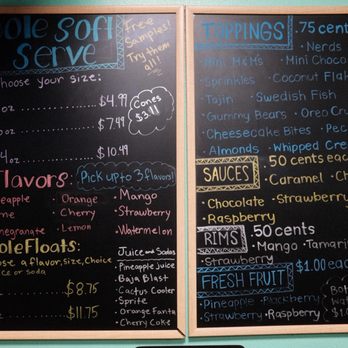 ole Soft
Serve
Free
Samples!
Try them
all!
hoose your size:
oz ... $4.99
oz ... $7.49
4oz ... $10.49
Cones
$3.11
Flavors:
Pick up to 3 flavors!
apple
Orange
Mango
me
Cherry
Strawberry
megranate
Lemon
Watermelon
oleFloats:
ose a flavor, size, Choice
ice or soda
$8.75
$11.75
Juice and Sodas
Pineapple juice
Baja Blast
Cactus Cooler
Sprite
Orange Fanta
Cherry Coke
TOPPINGS .75 cent
Nerds
Mini M&Ms
Mini Choco
Sprinkles
Coconut Flak
Tajin
Swedish Fish
Gummy Bears
Oreo Cru
Cheesecake Bites
Pec
Almonds
Whipped Cre
SAUCES .50 cents eac
Caramel
Ch
Chocolate
Strawberry
Raspberry
RIMS .50 cents
Mango
Tamari
Strawberry
FRESH FRUIT $1.00 ea
Pineapple
Blackberry
Strawberry
Raspberry
Bot
wat
$1.0